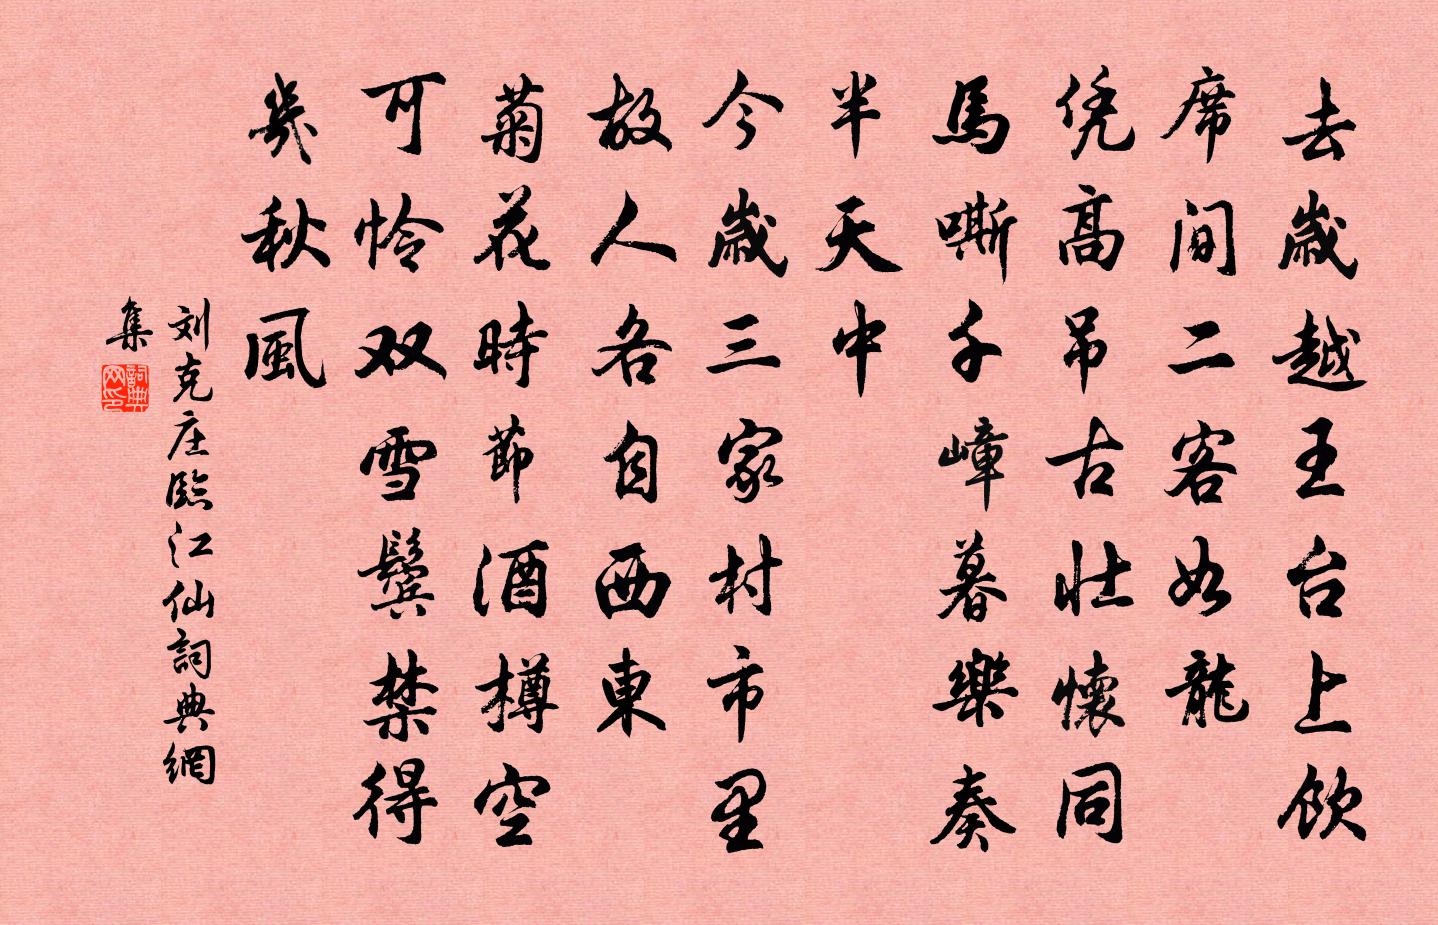 去歲越王台上飲
席间二客如龍
凭高吊古壮懷同
馬嘶千嶂暮
樂奏
半天中
今歲三家村市里
故人各自西東
菊花時節酒樽空
可怜双雪鬓禁得
幾秋風
刘克庄臨江仙詞典網
集
詞典网印